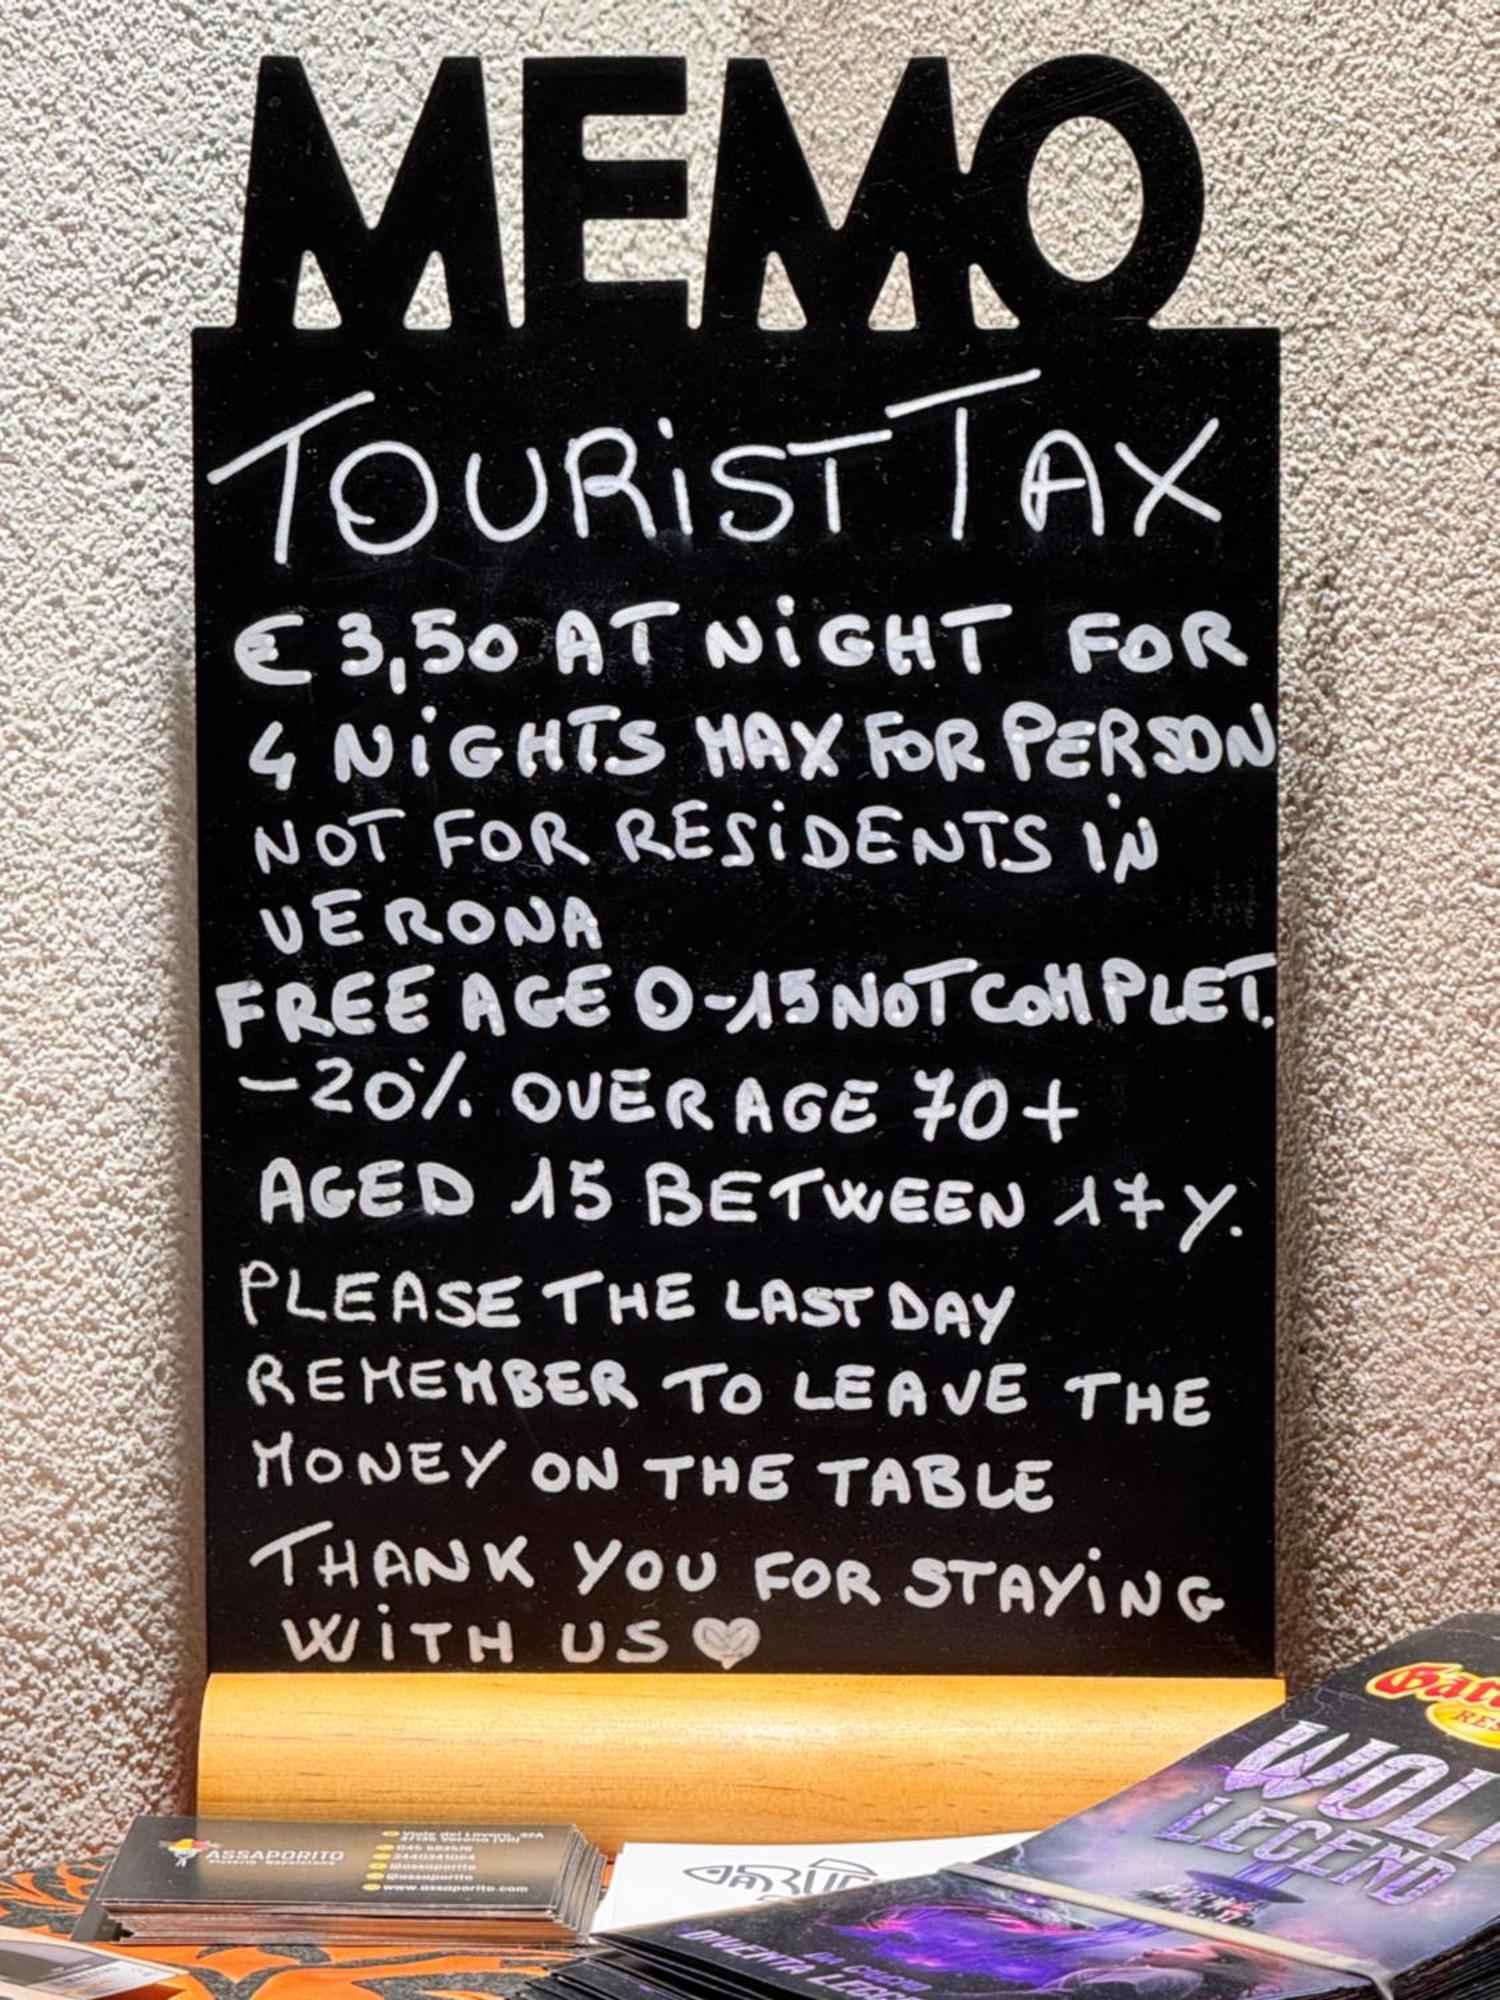 MEMO
TOURiST TAX
€ 3,50 AT NiGHT FOR
4 NiGHTS MAX FOR PERSON
NOT FOR RESiDENTS iN
VERONA
FREE AGE 0-15 NOT COMPLET.
-20% OVER AGE 70+
AGED 15 BETWEEN 17 Y.
PLEASE THE LAST DAY
REMEMBER TO LEAVE THE
MONEY ON THE TABLE
THANK YOU FOR STAYiNG
WiTH US
ASSAPORITO
Pizzeria Napoletana
Viale del Lavoro,
37135 Verona (VR)
@assaporito
@assaporito
www.assaporito.com
LEGEND
DIVENTA